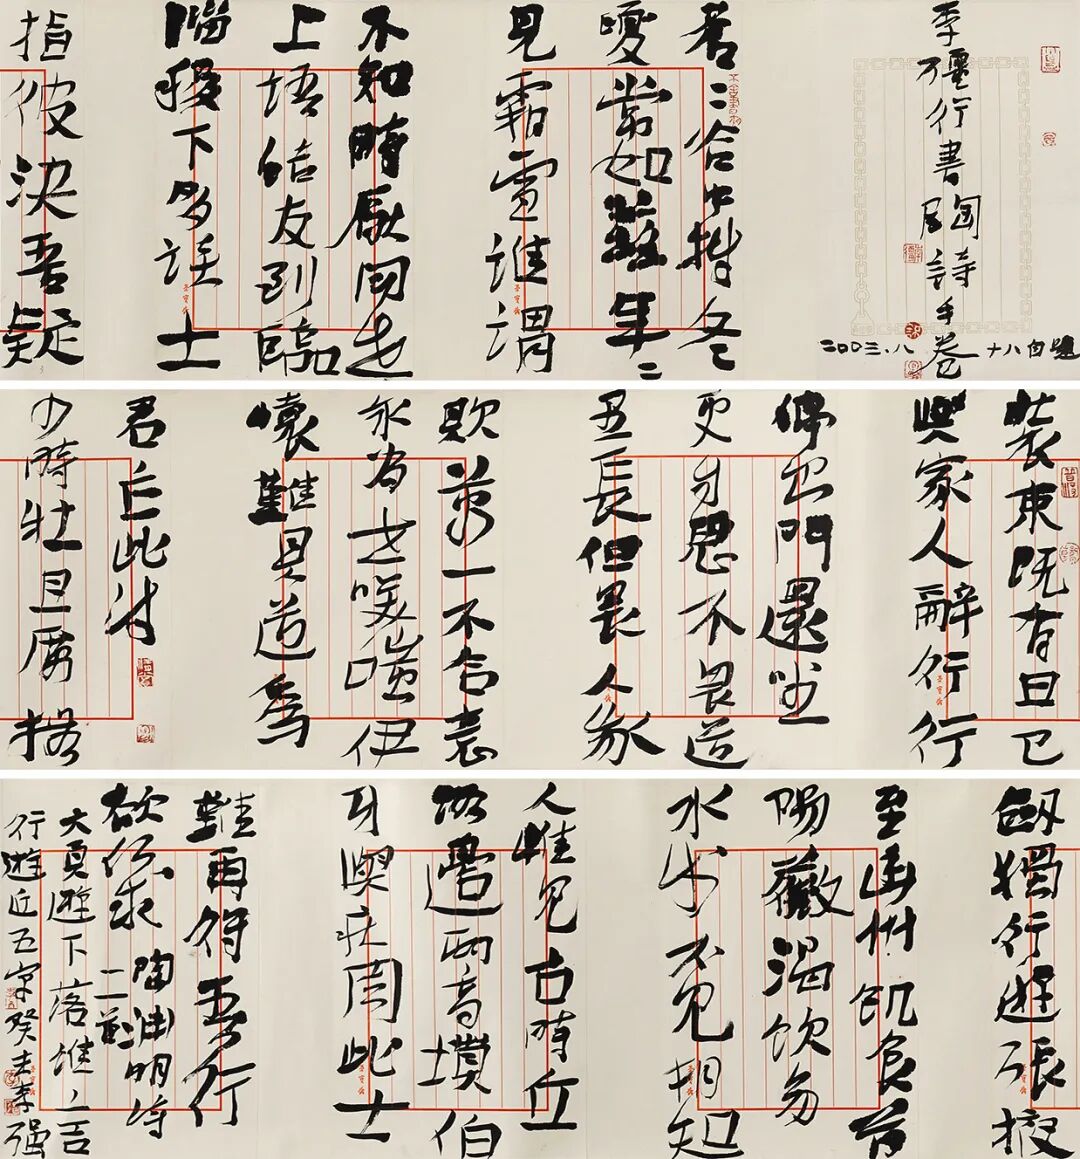 李彊行書陶詩手卷
二〇〇三.八 十八自題
蒼二谷中樹冬
夏常如茲年二
見霜雪誰謂
不知時厭聞世
上語結友到臨
淄稷下多談士
指彼決吾疑
裝束既有日已
與家人辭行行
停出門還坐
更自思不畏道
里長但畏人我
欺萬一不合意
永為世笑嗤伊
懷難具道為
君作此詩
少時壯且厲撫
劍獨行遊張掖
至幽州飢食首
陽薇渴飲易
水流不見相知
人惟見古時丘
路邊兩高墳伯
牙與莊周此士
難再得吾行
欲何求 陶淵明詩
二首
遊下落誰言
行遊近五字癸未李强